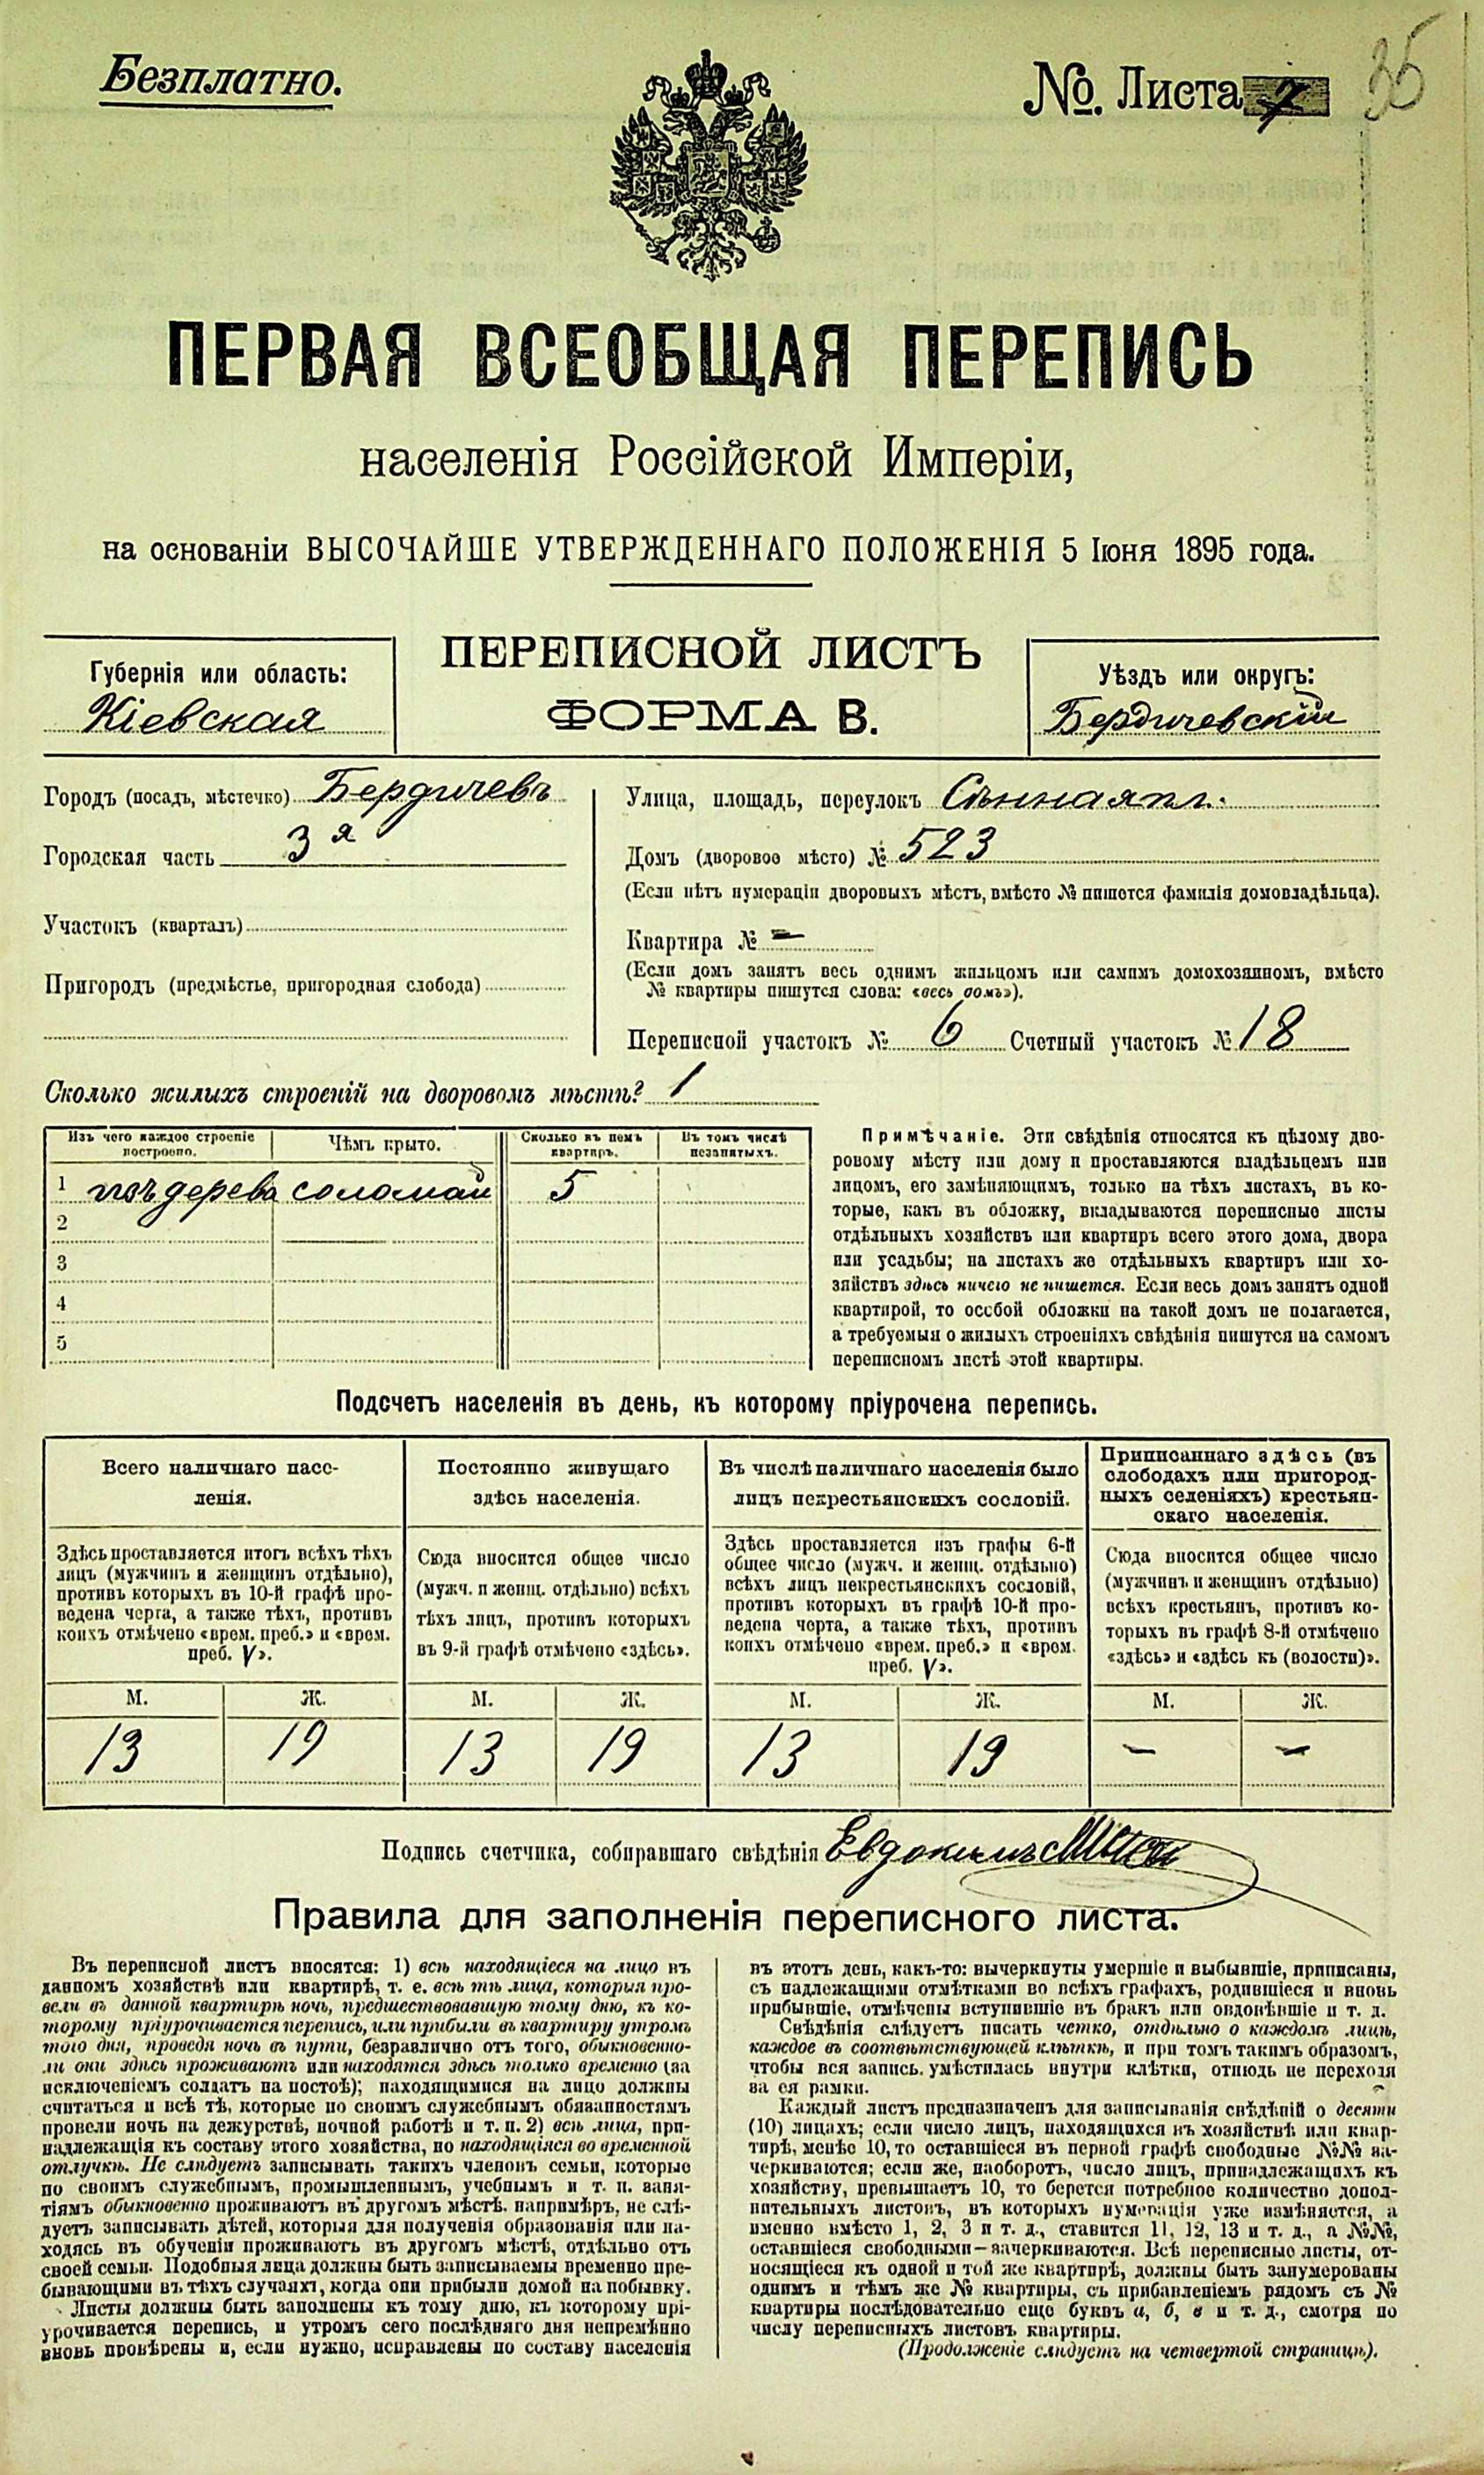 Безплатно.
№. Листа 7
35
ПЕРВАЯ ВСЕОБЩАЯ ПЕРЕПИСЬ
населенія Россійской Имперіи,
на основаніи ВЫСОЧАЙШЕ УТВЕРЖДЕННАГО ПОЛОЖЕНІЯ 5 Іюня 1895 года.
Губернія или область:
Кіевская
ПЕРЕПИСНОЙ ЛИСТЪ
ФОРМА В.
Уѣздъ или округъ:
Бердичевскій
Городъ (посадъ, мѣстечко) Бердичевъ
Городская часть 3я
Участокъ (кварталъ)
Пригородъ (предмѣстье, пригородная слобода)
Улица, площадь, переулокъ Сѣнная пл.
Домъ (дворовое мѣсто) № 523
(Если нѣтъ нумераціи дворовыхъ мѣстъ, вмѣсто № пишется фамилія домовладѣльца).
Квартира № –
(Если домъ занятъ весь однимъ жильцомъ или самимъ домохозяиномъ, вмѣсто
№ квартиры пишутся слова: «весь домъ»).
Переписной участокъ № 6 Счетный участокъ № 18
Сколько жилыхъ строеній на дворовомъ мѣстѣ? 1
Изъ чего каждое строеніе
построено.
Чѣмъ крыто.
Сколько въ немъ
квартиръ.
Въ томъ числѣ
незанятыхъ.
1 изъ дерева соломой 5
2
3
4
5
Примѣчаніе. Эти свѣдѣнія относятся къ цѣлому дво-
ровому мѣсту или дому и проставляются владѣльцемъ или
лицомъ, его замѣняющимъ, только на тѣхъ листахъ, въ ко-
торые, какъ въ обложку, вкладываются переписные листы
отдѣльныхъ хозяйствъ или квартиръ всего этого дома, двора
или усадьбы; на листахъ же отдѣльныхъ квартиръ или хо-
зяйствъ здѣсь ничего не пишется. Если весь домъ занятъ одной
квартирой, то особой обложки на такой домъ не полагается,
а требуемыя о жилыхъ строеніяхъ свѣдѣнія пишутся на самомъ
переписномъ листѣ этой квартиры.
Подсчетъ населенія въ день, къ которому пріурочена перепись.
Всего наличнаго насе-
ленія.
Здѣсь проставляется итогъ всѣхъ тѣхъ
лицъ (мужчинъ и женщинъ отдѣльно),
противъ которыхъ въ 10-й графѣ про-
ведена черта, а также тѣхъ, противъ
коихъ отмѣчено «врем. преб.» и «врем.
преб. V».
Постоянно живущаго
здѣсь населенія.
Сюда вносится общее число
(мужч. и женщ. отдѣльно) всѣхъ
тѣхъ лицъ, противъ которыхъ
въ 9-й графѣ отмѣчено «здѣсь».
Въ числѣ наличнаго населенія было
лицъ некрестьянскихъ сословій.
Здѣсь проставляется изъ графы 6-й
общее число (мужч. и женщ. отдѣльно)
всѣхъ лицъ некрестьянскихъ сословій,
противъ которыхъ въ графѣ 10-й про-
ведена черта, а также тѣхъ, противъ
коихъ отмѣчено «врем. преб.» и «врем.
преб. V».
Приписаннаго здѣсь (въ
слободахъ или пригород-
ныхъ селеніяхъ) крестьян-
скаго населенія.
Сюда вносится общее число
(мужчинъ и женщинъ отдѣльно)
всѣхъ крестьянъ, противъ ко-
торыхъ въ графѣ 8-й отмѣчено
«здѣсь» и «здѣсь къ (волости)».
М. Ж. М. Ж. М. Ж. М. Ж.
13 19 13 19 13 19 – –
Подпись счетчика, собиравшаго свѣдѣнія Евдокимъ
Правила для заполненія переписного листа.
Въ переписной листъ вносятся: 1) всѣ находящіеся на лицо въ
данномъ хозяйствѣ или квартирѣ, т. е. всѣ тѣ лица, которыя про-
вели въ данной квартирѣ ночь, предшествовавшую тому дню, къ ко-
торому пріурочивается перепись, или прибыли въ квартиру утромъ
того дня, проведя ночь въ пути, безразлично отъ того, обыкновенно-
ли они здѣсь проживаютъ или находятся здѣсь только временно (за
исключеніемъ солдатъ на постоѣ); находящимися на лицо должны
считаться и всѣ тѣ, которые по своимъ служебнымъ обязанностямъ
провели ночь на дежурствѣ, ночной работѣ и т. п. 2) всѣ лица, при-
надлежащія къ составу этого хозяйства, но находящіяся во временной
отлучкѣ. Не слѣдуетъ записывать такихъ членовъ семьи, которые
по своимъ служебнымъ, промышленнымъ, учебнымъ и т. п. заня-
тіямъ обыкновенно проживаютъ въ другомъ мѣстѣ. напримѣръ, не слѣ-
дуетъ записывать дѣтей, которыя для полученія образованія или на-
ходясь въ обученіи проживаютъ въ другомъ мѣстѣ, отдѣльно отъ
своей семьи. Подобныя лица должны быть записываемы временно пре-
бывающими въ тѣхъ случаяхъ, когда они прибыли домой на побывку.
Листы должны быть заполнены къ тому дню, къ которому прі-
урочивается перепись, и утромъ сего послѣдняго дня непремѣнно
вновь провѣрены и, если нужно, исправлены по составу населенія
въ этотъ день, какъ-то: вычеркнуты умершіе и выбывшіе, приписаны,
съ надлежащими отмѣтками во всѣхъ графахъ, родившіеся и вновь
прибывшіе, отмѣчены вступившіе въ бракъ или овдовѣвшіе и т. д.
Свѣдѣнія слѣдуетъ писать четко, отдѣльно о каждомъ лицѣ,
каждое въ соотвѣтствующей клѣткѣ, и при томъ такимъ образомъ,
чтобы вся запись. умѣстилась внутри клѣтки, отнюдь не переходя
за ея рамки.
Каждый листъ предназначенъ для записыванія свѣдѣній о десяти
(10) лицахъ; если число лицъ, находящихся въ хозяйствѣ или квар-
тирѣ, менѣе 10, то оставшіеся въ первой графѣ свободные №№ за-
черкиваются; если же, наоборотъ, число лицъ, принадлежащихъ къ
хозяйству, превышаетъ 10, то берется потребное количество допол-
нительныхъ листовъ, въ которыхъ нумерація уже измѣняется, а
именно вмѣсто 1, 2, 3 и т. д., ставится 11, 12, 13 и т. д., а №№,
оставшіеся свободными—зачеркиваются. Всѣ переписные листы, от-
носящіеся къ одной и той же квартирѣ, должны быть занумерованы
однимъ и тѣмъ же № квартиры, съ прибавленіемъ рядомъ съ №
квартиры послѣдовательно еще буквъ а, б, в и т. д., смотря по
числу переписныхъ листовъ квартиры.
(Продолженіе слѣдуетъ на четвертой страницѣ).